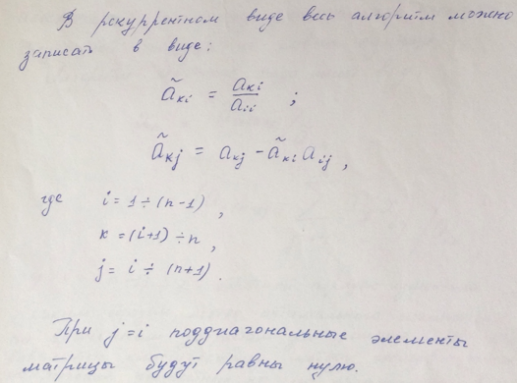 В рекуррентном виде весь алгоритм можно
записать в виде:
ã_ki = a_ki / a_ii ;
ã_kj = a_kj - ã_ki a_ij ,
где i = 1 ÷ (n-1) ,
к = (i+1) ÷ n ,
j = i ÷ (n+1) .
При j=i поддиагональные элементы
матрицы будут равны нулю.